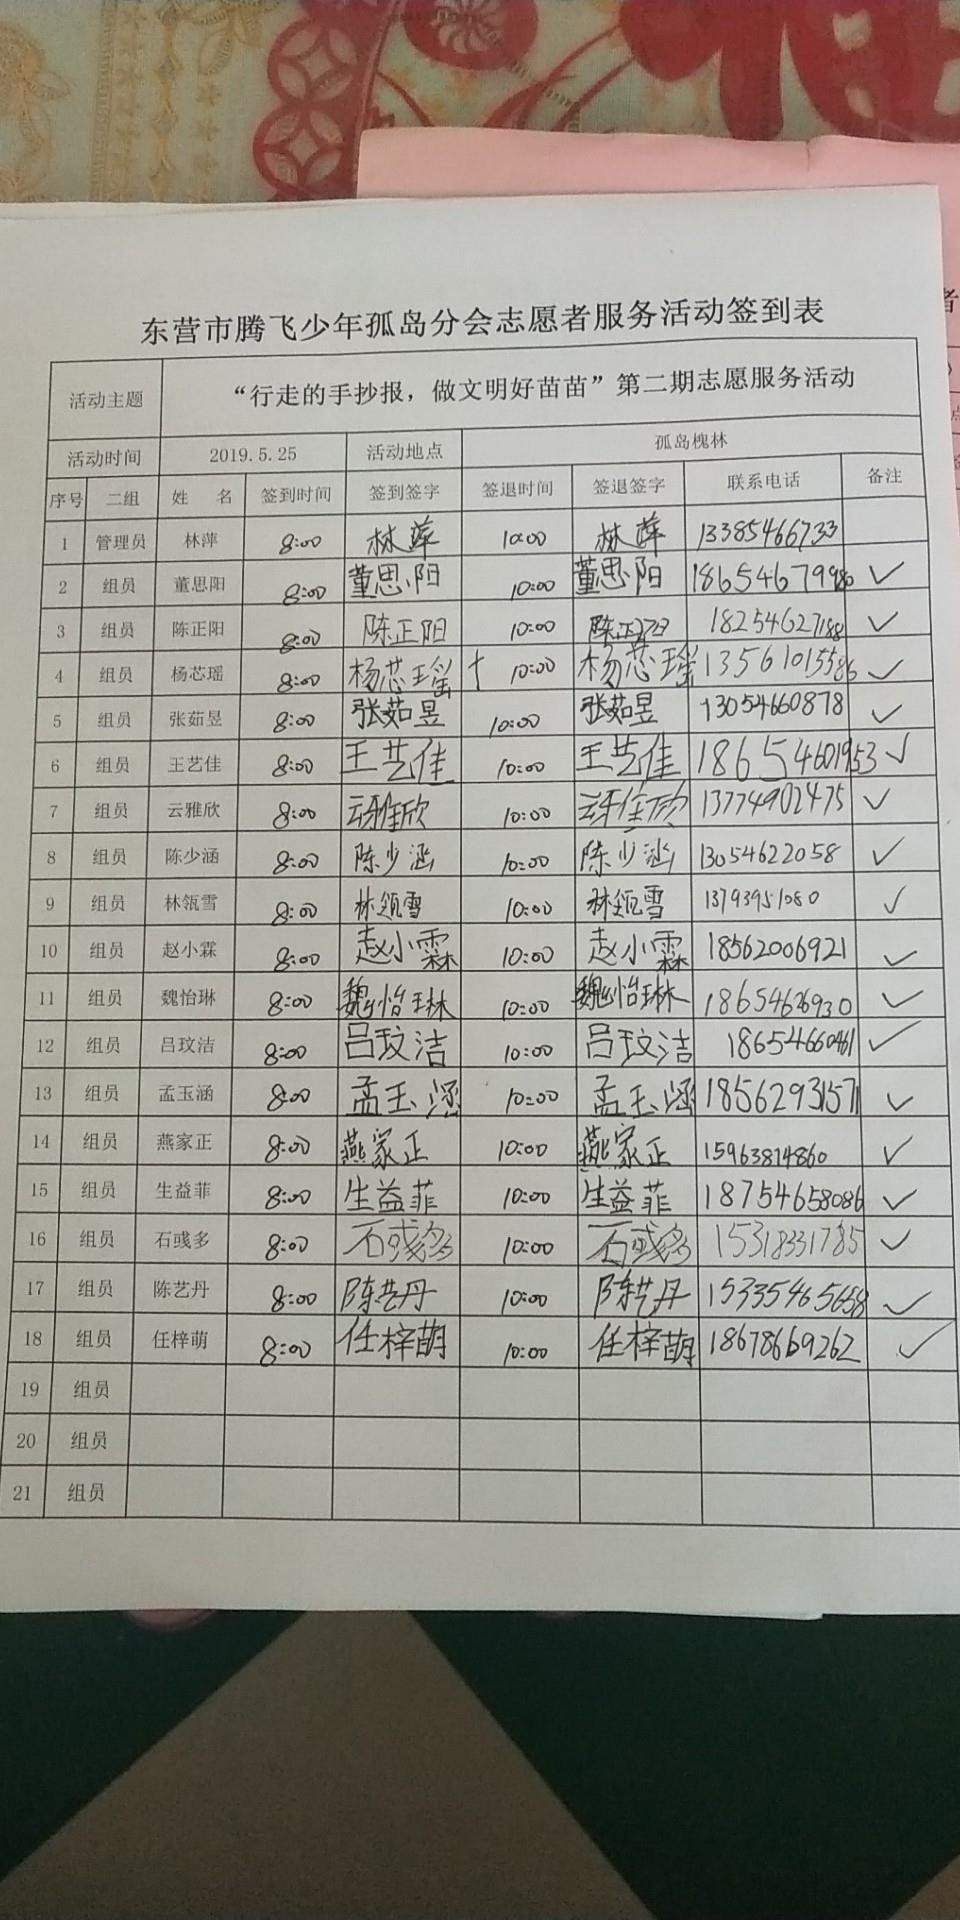 东营市腾飞少年孤岛分会志愿者服务活动签到表
活动主题 “行走的手抄报，做文明好苗苗”第二期志愿服务活动
活动时间 2019.5.25 活动地点 孤岛槐林
序号 二组 姓 名 签到时间 签到签字 签退时间 签退签字 联系电话 备注
1 管理员 林萍 8:00 林萍 10:00 林萍 13385466733
2 组员 董思阳 8:00 董思阳 10:00 董思阳 ✓
3 组员 陈正阳 8:00 陈正阳 10:00 陈正阳 18254627188 ✓
4 组员 杨芯瑶 8:00 杨芯瑶 10:00 杨芯瑶 13561015586 ✓
5 组员 张茹昱 8:00 张茹昱 10:00 张茹昱 13054660878 ✓
6 组员 王艺佳 8:00 王艺佳 10:00 王艺佳 18654601953 ✓
7 组员 云雅欣 8:00 云雅欣 10:00 云雅欣 13774902475 ✓
8 组员 陈少涵 8:00 陈少涵 10:00 陈少涵 13054622058 ✓
9 组员 林瓴雪 8:00 林瓴雪 10:00 林瓴雪 13793951080 ✓
10 组员 赵小霖 8:00 赵小霖 10:00 赵小霖 18562006921 ✓
11 组员 魏怡琳 8:00 魏怡琳 10:00 魏怡琳 18654626930 ✓
12 组员 吕玟洁 8:00 吕玟洁 10:00 吕玟洁 ✓
13 组员 孟玉涵 8:00 孟玉涵 10:00 孟玉涵 18562931571 ✓
14 组员 燕家正 8:00 燕家正 10:00 燕家正 15963814860 ✓
15 组员 生益菲 8:00 生益菲 10:00 生益菲 18754658086 ✓
16 组员 石彧多 8:00 石彧多 10:00 石彧多 15318331785 ✓
17 组员 陈艺丹 8:00 陈艺丹 10:00 陈艺丹 15335465658 ✓
18 组员 任梓萌 8:00 任梓萌 10:00 任梓萌 18678669262 ✓
19 组员
20 组员
21 组员